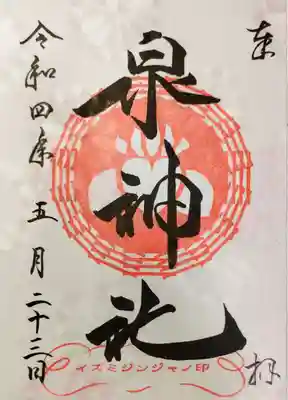 奉拝
泉神社
令和四年五月二十三日
イズミジンジャノ印